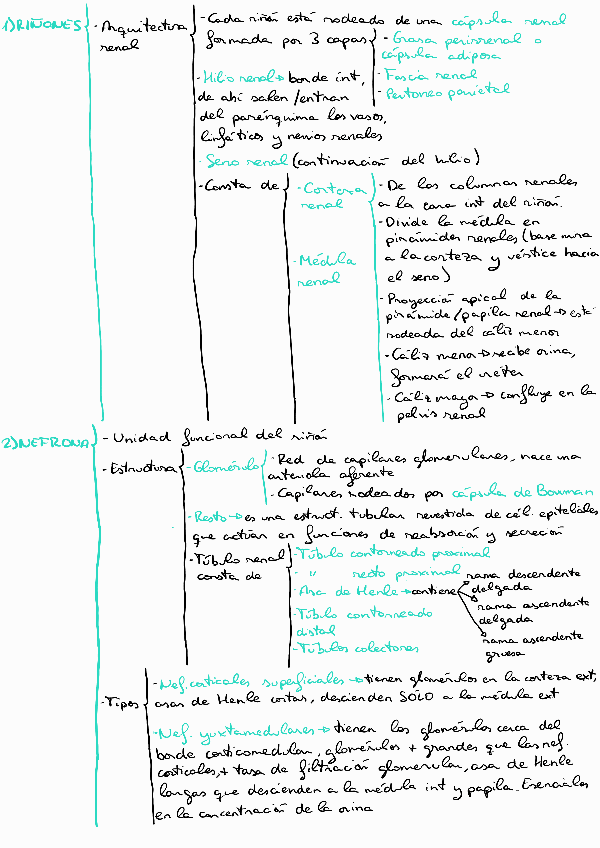 1) RIÑONES
- Arquitectura renal
- Cada riñón está rodeado de una cápsula renal
formada por 3 capas
- Grasa perirrenal o
cápsula adiposa
- Fascia renal
- Peritoneo parietal
- Hilio renal → borde int,
de ahí salen/entran
del parénquima los vasos,
linfáticos y nervios renales
- Seno renal (continuación del hilio)
- Consta de
- Corteza
renal
- De las columnas renales
a la cara int del riñón.
- Divide la médula en
pirámides renales (base mira
a la corteza y vértice hacia
el seno)
- Médula
renal
- Proyección apical de la
pirámide/papila renal → está
rodeada del cáliz menor
- Cáliz menor → recibe orina,
formará el uréter
- Cáliz mayor → confluye en la
pelvis renal
2) NEFRONA
- Unidad funcional del riñón
- Estructura
- Glomérulo
- Red de capilares glomerulares, nace una
arteriola aferente
- Capilares rodeados por cápsula de Bowman
- Resto → es una estruct. tubular revestida de cél. epiteliales
que actúan en funciones de reabsorción y secreción
- Túbulo renal
consta de
- Túbulo contorneado proximal
- " recto proximal
- Asa de Henle → contiene
rama descendente
delgada
rama ascendente
delgada
rama ascendente
gruesa
- Túbulo contorneado
distal
- Túbulos colectores
- Tipos
- Nef. corticales superficiales → tienen glomérulos en la corteza ext,
asas de Henle cortas, descienden SOLO a la médula ext
- Nef. yuxtamedulares → tienen los glomérulos cerca del
borde corticomedular, glomérulos + grandes que las nef.
corticales, + tasa de filtración glomerular, asa de Henle
largas que descienden a la médula int y papila. Esenciales
en la concentración de la orina